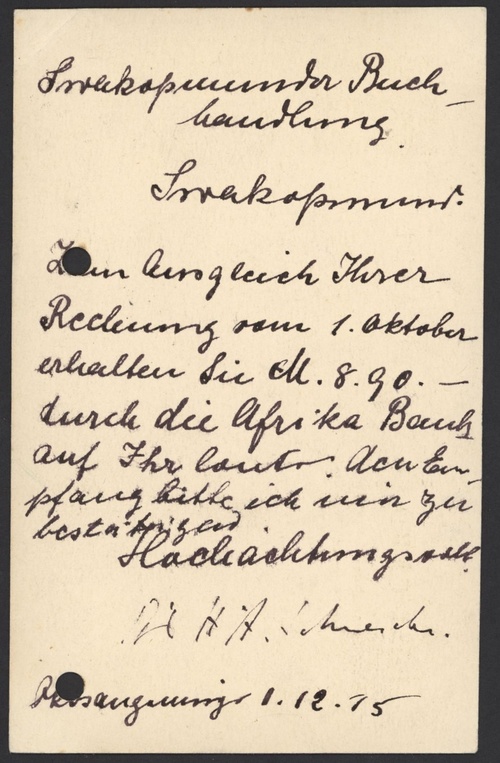 Swakopmunder Buch-
handlung.
Swakopmund.
Zum Ausgleich Ihrer
Rechnung vom 1. Oktober
erhalten Sie M. 8.90. —
durch die Afrika Bank
auf Ihr Conto. Den Em-
pfang bitte ich mir zu
bestätigen
Hochachtungsvoll.
H. A.
1.12.15